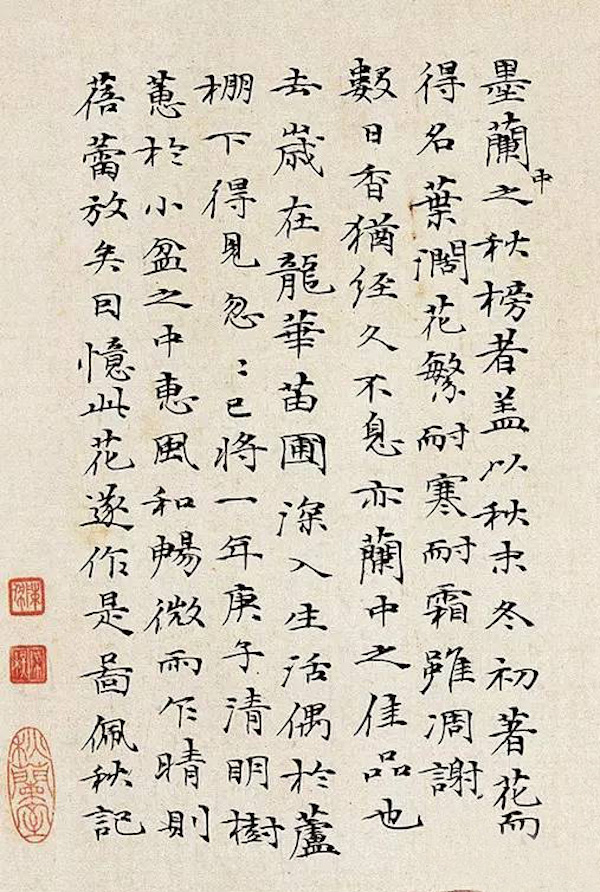 墨蘭中之秋榜者盖以秋末冬初著花而
得名葉濶花繁耐寒耐霜雖凋謝
數日香猶经久不息亦蘭中之佳品也
去嵗在龍華苗圃深入生活偶於蘆
棚下得見忽〻已將一年庚子清眀樹
蕙於小盆之中惠風和暢微雨乍晴則
蓓蕾放矣囙憶此花遂作是啚佩秋記
秋蘭室